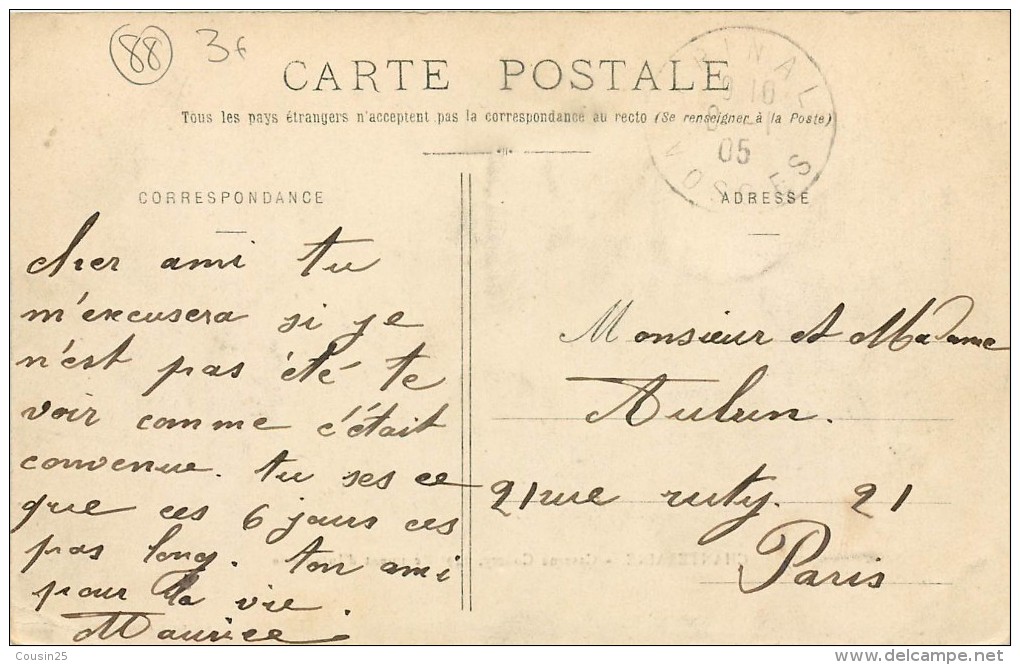 88 3f
CARTE POSTALE
Tous les pays étrangers n'acceptent pas la correspondance au recto (Se renseigner à la Poste)
PINAL
9 10
05
VOSGES
CORRESPONDANCE
cher ami tu
m'excusera si je
n'est pas été te
voir comme c'était
convenue. tu ses ce
que ces 6 jours ces
pas long. ton ami
pour la vie
Maurice.
ADRESSE
Monsieur et Madame
Aulun.
21 rue ruty. 21
Paris
Cousin25
delcampe.net